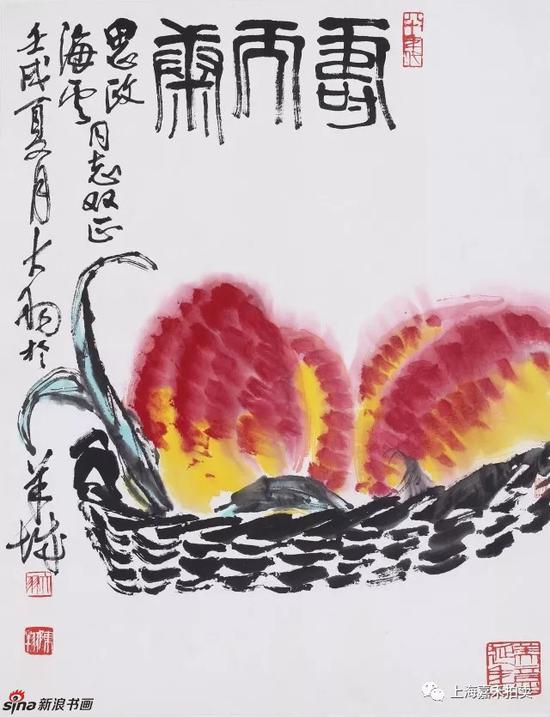 壽而康
思政
海雲同志双正
壬戌夏月大羽於羊城
美意延年
sina新浪书画
上海嘉禾拍卖